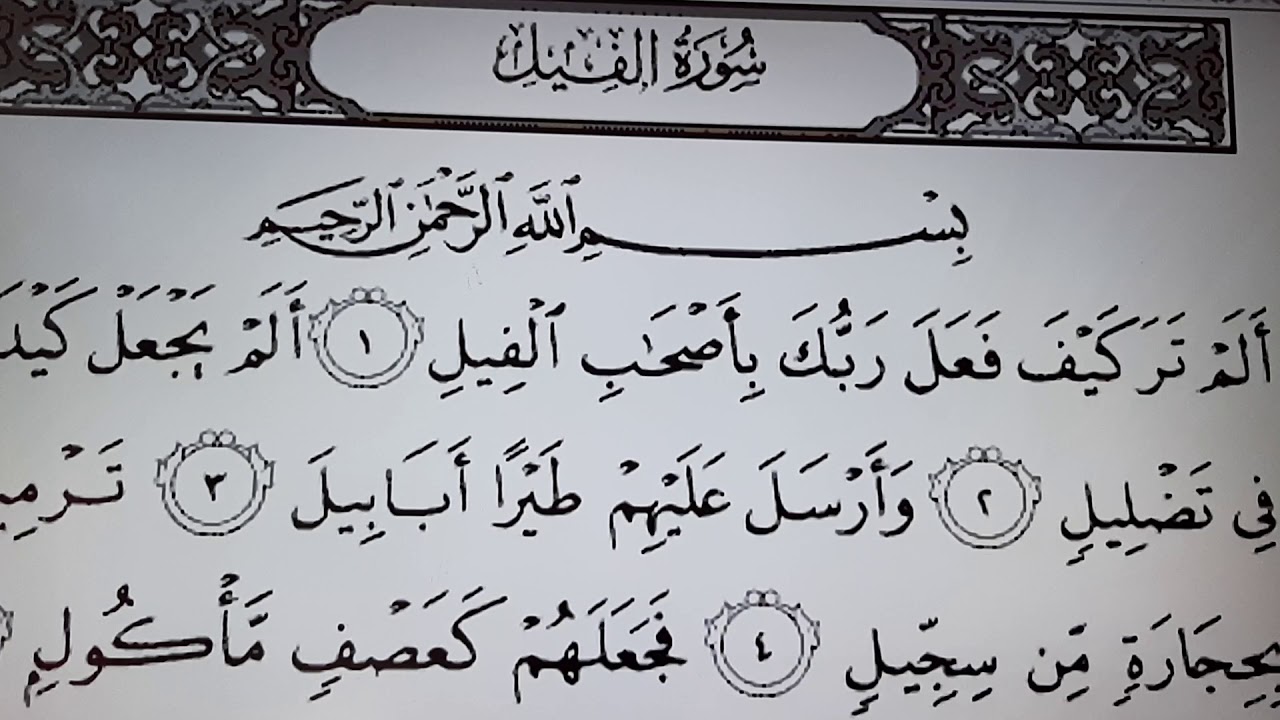 سُورَةُ الفِيلِ
بِسْمِ ٱللَّهِ ٱلرَّحْمَٰنِ ٱلرَّحِيمِ
أَلَمْ تَرَ كَيْفَ فَعَلَ رَبُّكَ بِأَصْحَٰبِ ٱلْفِيلِ ١ أَلَمْ يَجْعَلْ كَيْدَ
فِي تَضْلِيلٍ ٢ وَأَرْسَلَ عَلَيْهِمْ طَيْرًا أَبَابِيلَ ٣ تَرْمِي
بِحِجَارَةٍ مِّن سِجِّيلٍ ٤ فَجَعَلَهُمْ كَعَصْفٍ مَّأْكُولٍ